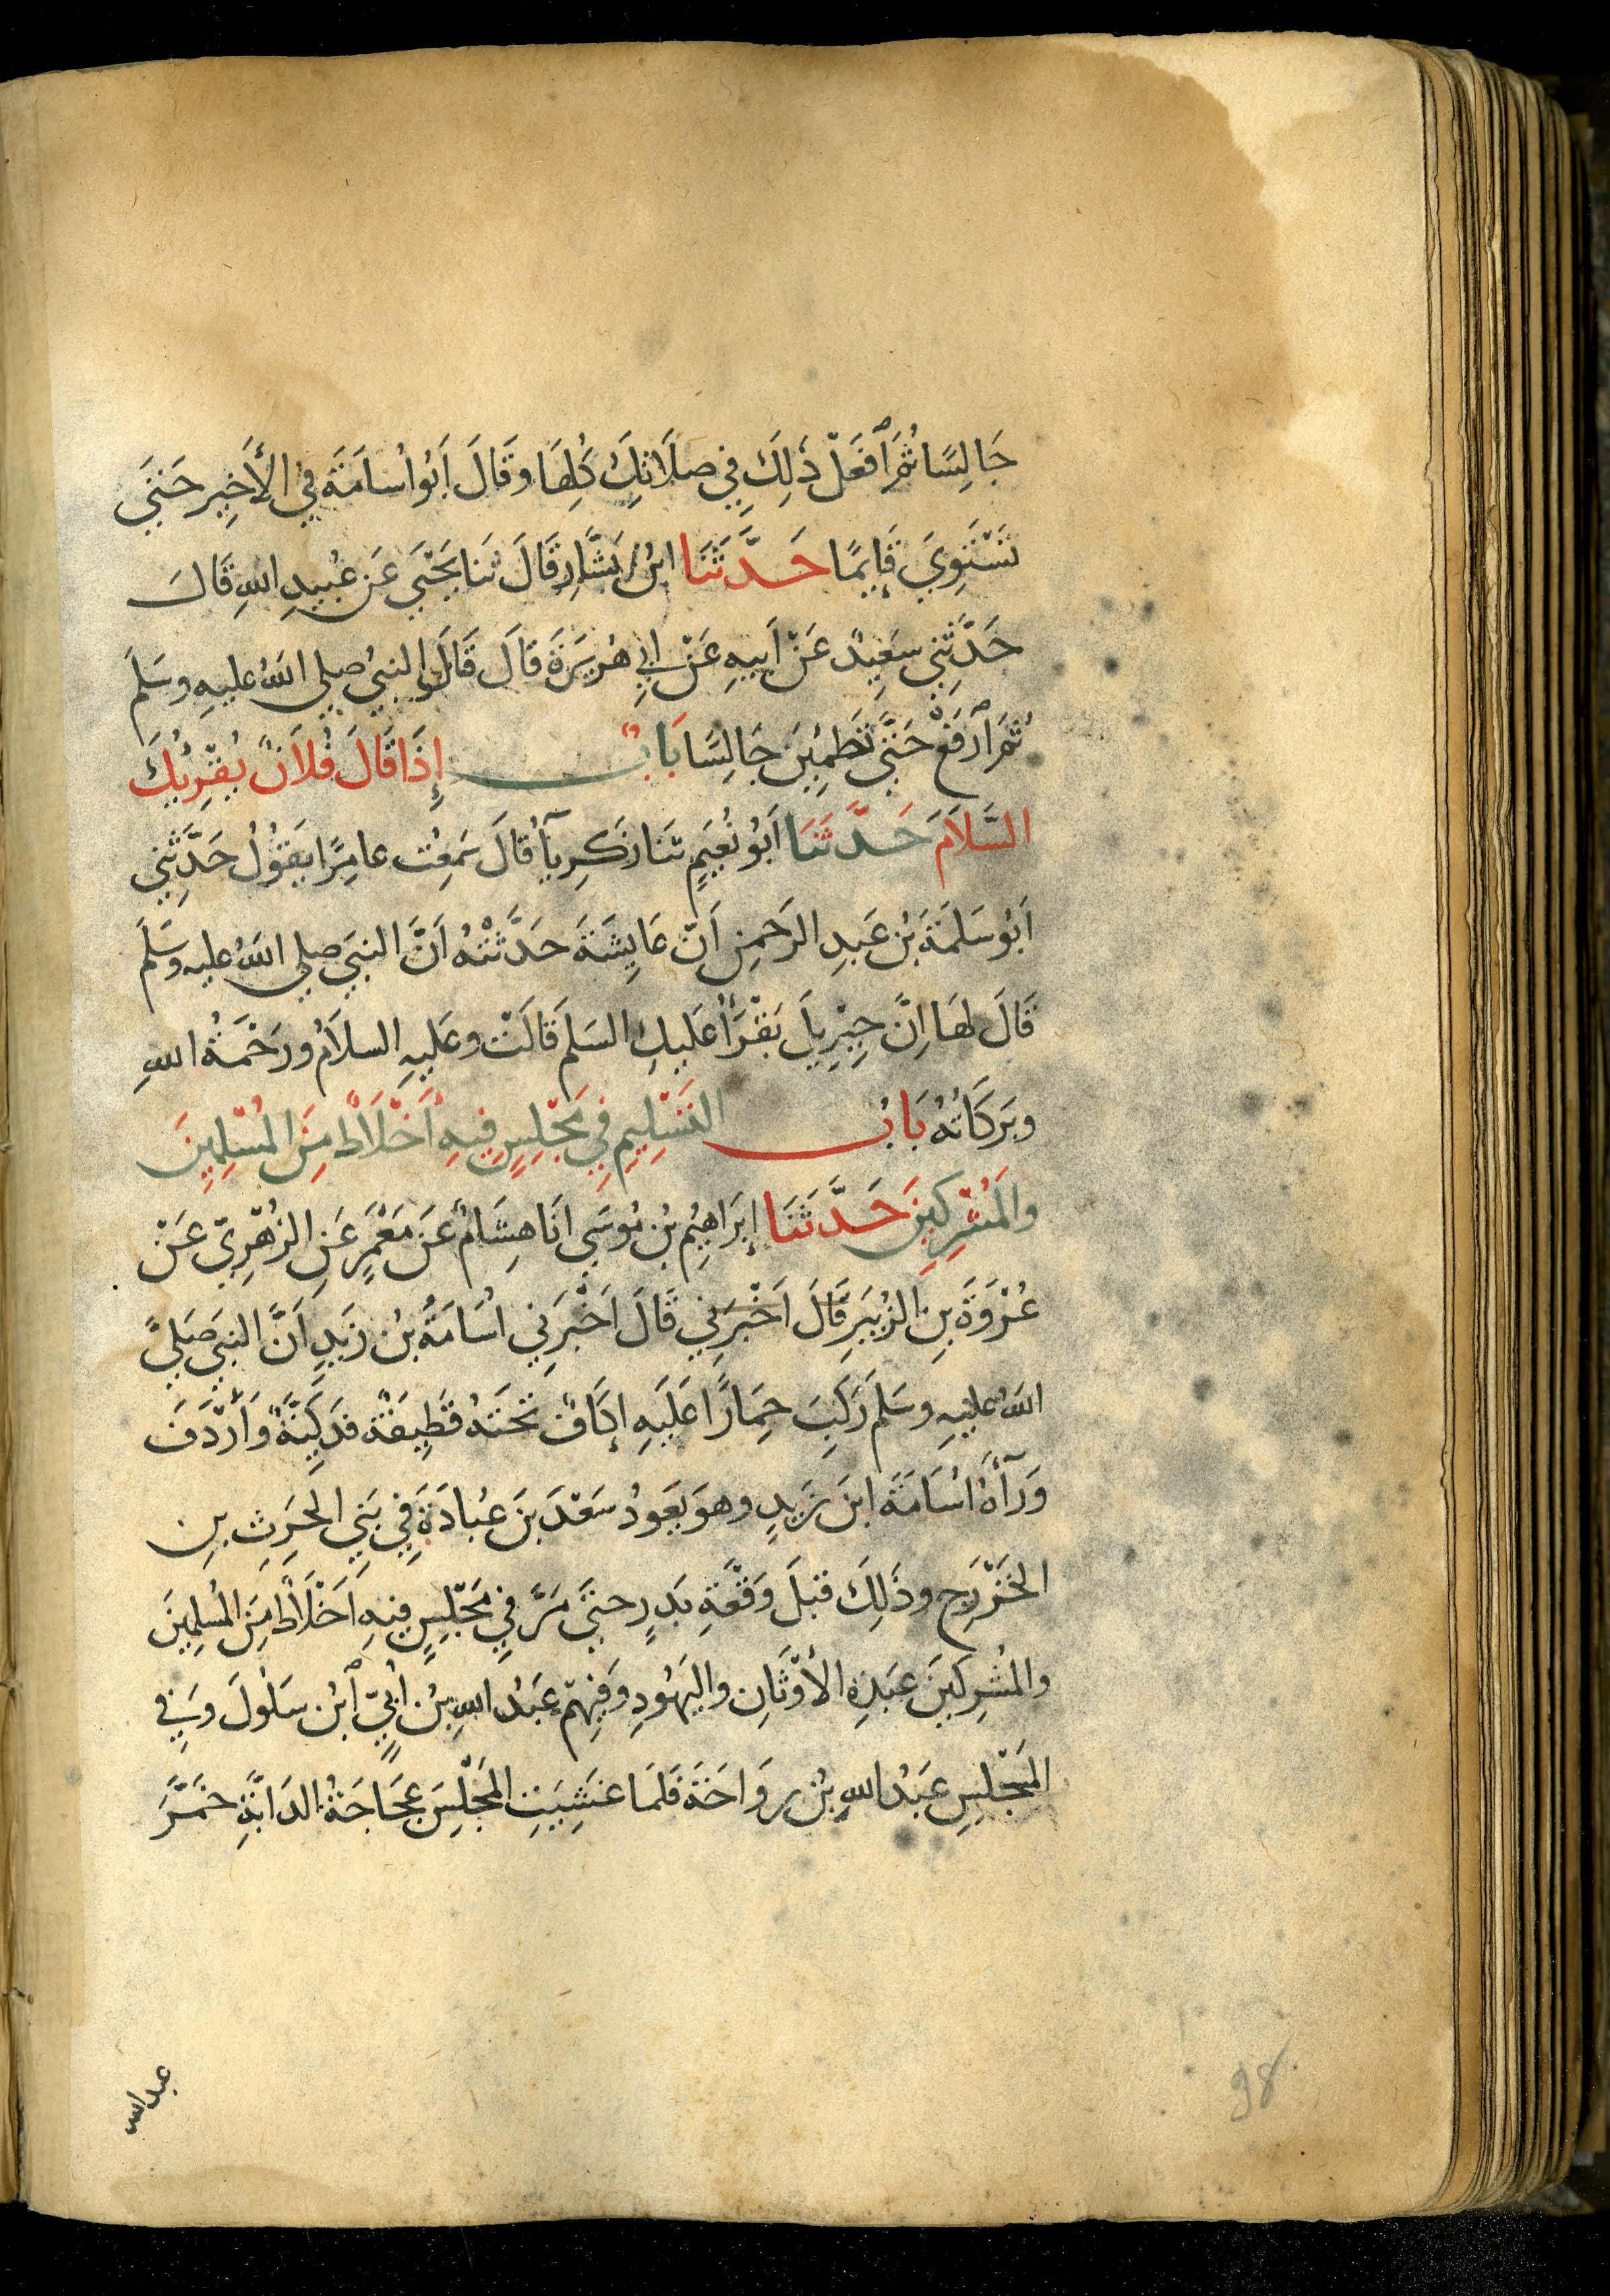 جَالِسًا ثُمَّ ٱفْعَلْ ذَلِكَ فِي صَلَاتِكَ كُلِّهَا وقَالَ أَبُو أُسَامَةَ فِي الأَخِيرِ حَتَّى
تَسْتَوِيَ قَايِمًا حَدَّثَنَا ابْنُ بَشَّارٍ قَالَ ثَنَا يَحْيَى عَن عُبَيدِ اللهِ قَالَ
حَدَّثَنِي سَعِيدٌ عَنْ أَبِيهِ عَنْ أَبِي هُرَيرَةَ قَالَ قَالَ النبيُ صلى اللهُ عليهِ وسَلمَ
ثُمَّ ٱرْفَعْ حَتَّى تَطْمَئِنَ جَالِسًا بَابٌ إِذَا قَالَ فُلَانٌ يُقْرِئُكَ
السَّلَامَ حَدَّثَنَا أَبُو نُعَيمٍ ثَنَا زَكَرِيَآءُ قَالَ سَمِعْتُ عَامِرًا يَقُولُ حَدَّثَنِي
أَبُو سَلَمَةَ بْنُ عَبدِ الرَحمنِ أَنَّ عَايِشَةَ حَدَّثَتْهُ أَنَّ النبيَ صلى اللهُ عليه وسَلمَ
قَالَ لَهَا إِنَّ جِبْرِيلَ يَقْرَأُ عَلَيكِ السَلَمَ قَالَتْ وعَلَيهِ السلَامُ ورَحْمَةُ اللهِ
وبَرَكَاتُهُ بَابُ التَسْلِيمِ فِي مَجْلِسٍ فِيهِ أَخْلَاطٌ مِنَ المُسْلِمِينَ
والمُشْرِكِينَ حَدَّثَنَا إِبرَاهِيمُ بْنُ مُوسَى أنَا هِشَامٌ عَن مَعْمَرٍ عَنِ الزُهْرِيِّ عَنْ
عُرْوَةَ بنِ الزُبَيرِ قَالَ أَخْبَرَنِي قَالَ أَخْبَرَنِي أُسَامَةُ بنُ زَيدٍ أَنَّ النبيَ صَلى
اللهُ عليهِ وسَلمَ رَكِبَ حِمَارًا عَلَيهِ إِكَافٌ تَحْتَهُ قَطِيفَةٌ فَدَكِيَّةٌ وَأَرْدَفَ
وَرَآءَهُ أُسَامَةَ ابنَ زَيدٍ وهوَ يَعُودُ سَعْدَ بنَ عُبادَةَ فِي بَنِي الحَرِثِ بنِ
الخَزْرَجِ وذَلِكَ قَبلَ وَقْعَةِ بَدرٍ حتَى مَرَّ فِي مَجْلِسٍ فِيهِ أَخْلَاطٌ مِنَ المُسلِمِينَ
والمُشرِكِينَ عَبَدَةِ الأَوْثَانِ واليَهُودِ وَفِيهِمْ عَبدُ اللهِ بنُ أُبَيٍّ ٱبْنُ سَلُولَ وَفِي
المَجْلِسِ عَبْدُ اللهِ بنُ رَوَاحَةَ فَلَمَا غَشِيَتِ المَجْلِسَ عَجَاجَةُ الدَابَّةِ خَمَّرَ
عبد الله
98